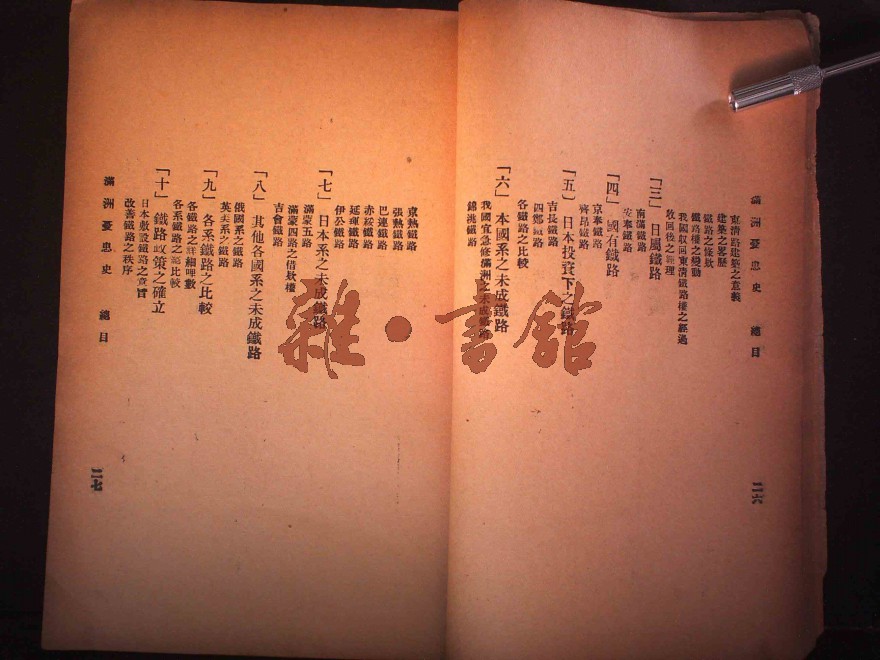 滿洲憂患史　總目
東清路建築之意義
建築之畧歷
鐵路之條欵
鐵路權之變動
我國収回東清鐵路權之經過
收回後之
「三」 日屬鐵路
南滿鐵路
安奉鐵路
「四」 國有鐵路
京奉鐵路
齊昂鐵路
「五」 日本投資下之鐵路
吉長鐵路
四鄭鐵路
各鐵路之比較
「六」 本國系之未成鐵路
我國宜急修滿洲之未成鐵路
錦洮鐵路
二六
京熱鐵路
張熱鐵路
巴連鐵路
赤綏鐵路
延琿鐵路
伊公鐵路
「七」 日本系之未成鐵路
滿蒙五路
滿蒙四路之借欵權
吉會鐵路
「八」 其他各國系之未成鐵路
俄國系之鐵路
英美系之鐵路
「九」 各系鐵路之比較
各鐵路之詳細哩數
各系鐵路之總比較
「十」 鐵路政策之確立
日本敷設鐵路之意旨
改善鐵路之秩序
滿洲憂患史　總目
二七
雜·書館